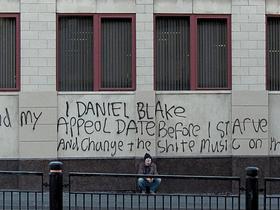 I DANIEL BLAKE
nd my APPEOL DATE BefoRe I StARve
AND CHANGE tHe SHite Music on